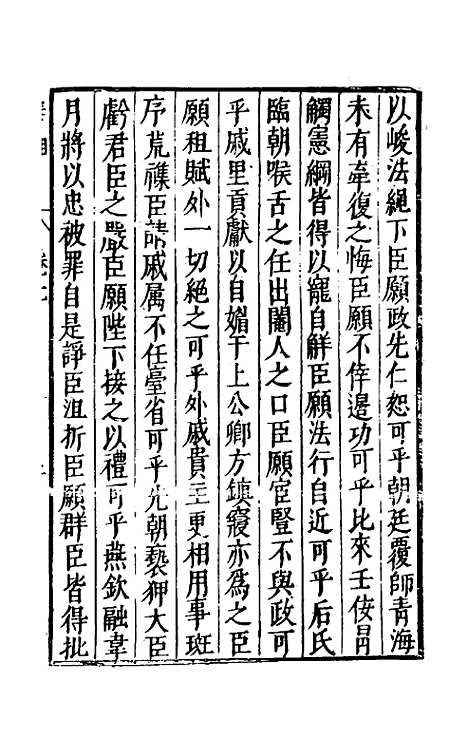 以峻法繩下臣願政先仁恕可乎朝廷覆師青海
未有牽復之悔臣願不倖邊功可乎比來壬佞冐
觸憲綱皆得以寵自解臣願法行自近可乎后氏
臨朝喉舌之任出閹人之口臣願宦豎不與政可
乎戚里貢獻以自媚于上公卿方鎮寖亦爲之臣
願租賦外一切絕之可乎外戚貴主更相用事班
序荒襍臣請戚属不任臺省可乎先朝褻狎大臣
虧君臣之嚴臣願陛下接之以禮可乎燕欽融韋
月將以忠被罪自是諍臣沮折臣願群臣皆得批